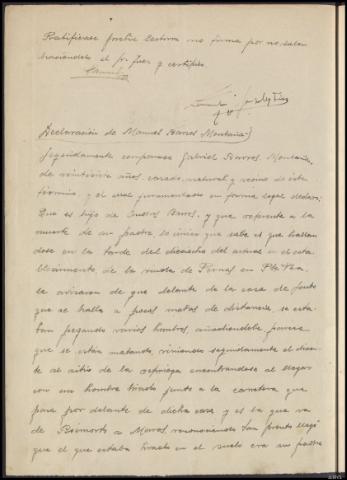 Ratifícase previa lectura no firma por no saber
haciéndolo el Sr. Juez y certifico.
Declaración de Manuel Barros Montaña
Seguidamente comparece Gabriel Barros Montaña
de veintinueve años, casado, natural y vecino de este
término, y el cual juramentado en forma legal declara:
Que es hijo de Barros, y que referente a la
muerte de su padre lo único que sabe es que hallán
dose en la tarde del dieciocho del actual en el esta
blecimiento de la viuda de Pernas en
le avisaron de que delante de la casa de
que se halla a pocos metros de distancia, se esta
ban pegando varios hombres, añadiéndole parece
que se están matando, viniendo seguidamente el dicen
te al sitio de la refriega encontrándose al llegar
con un hombre tirado junto a la carretera que
pasa por delante de dicha casa y es la que va
de a reconociendo tan pronto llegó
que el que estaba tirado en el suelo era su padre